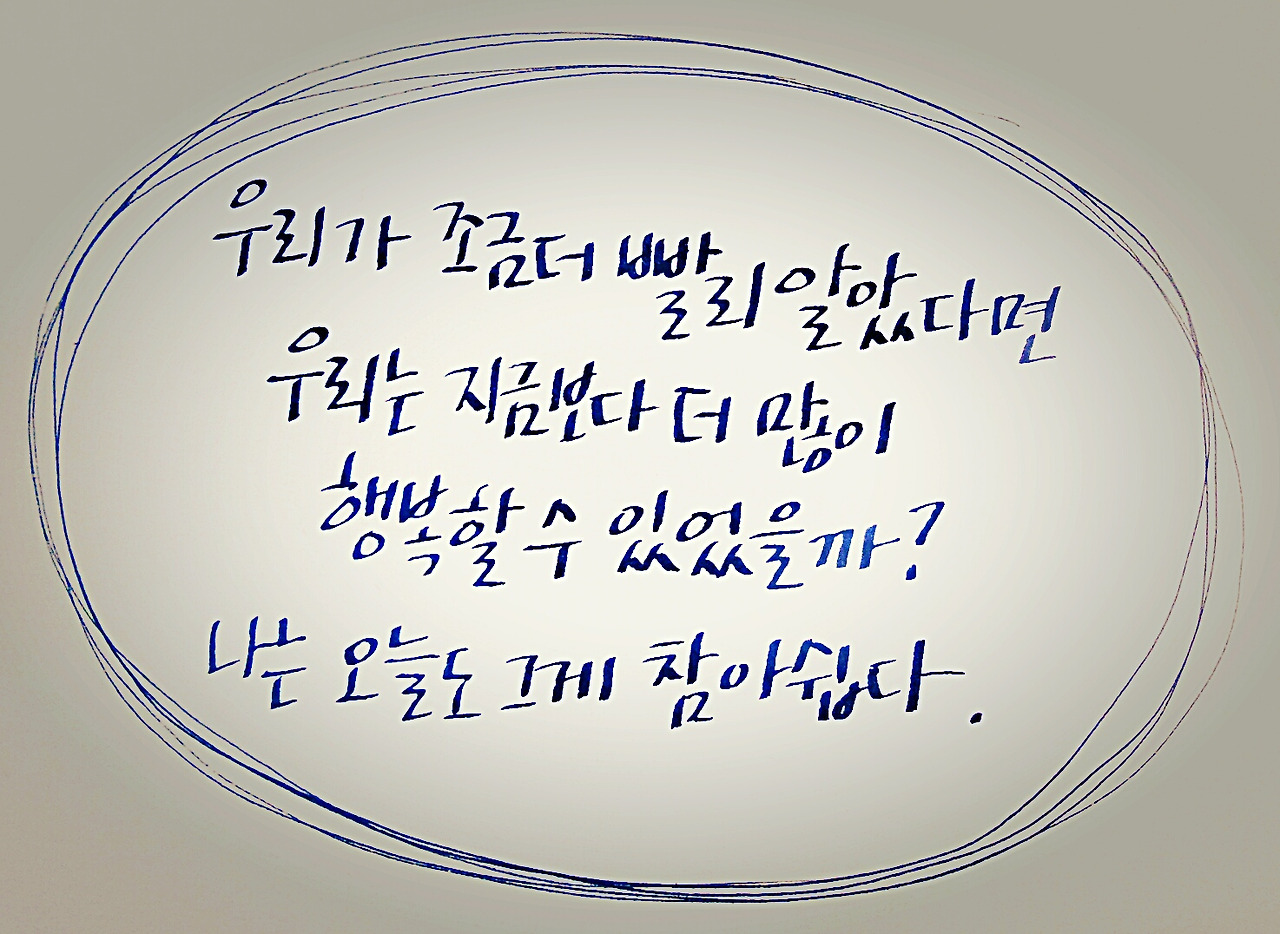 우리가 조금더 빨리 알았다면
우리는 지금보다 더 많이
행복할 수 있었을까?
나는 오늘도 그게 참 아쉽다.